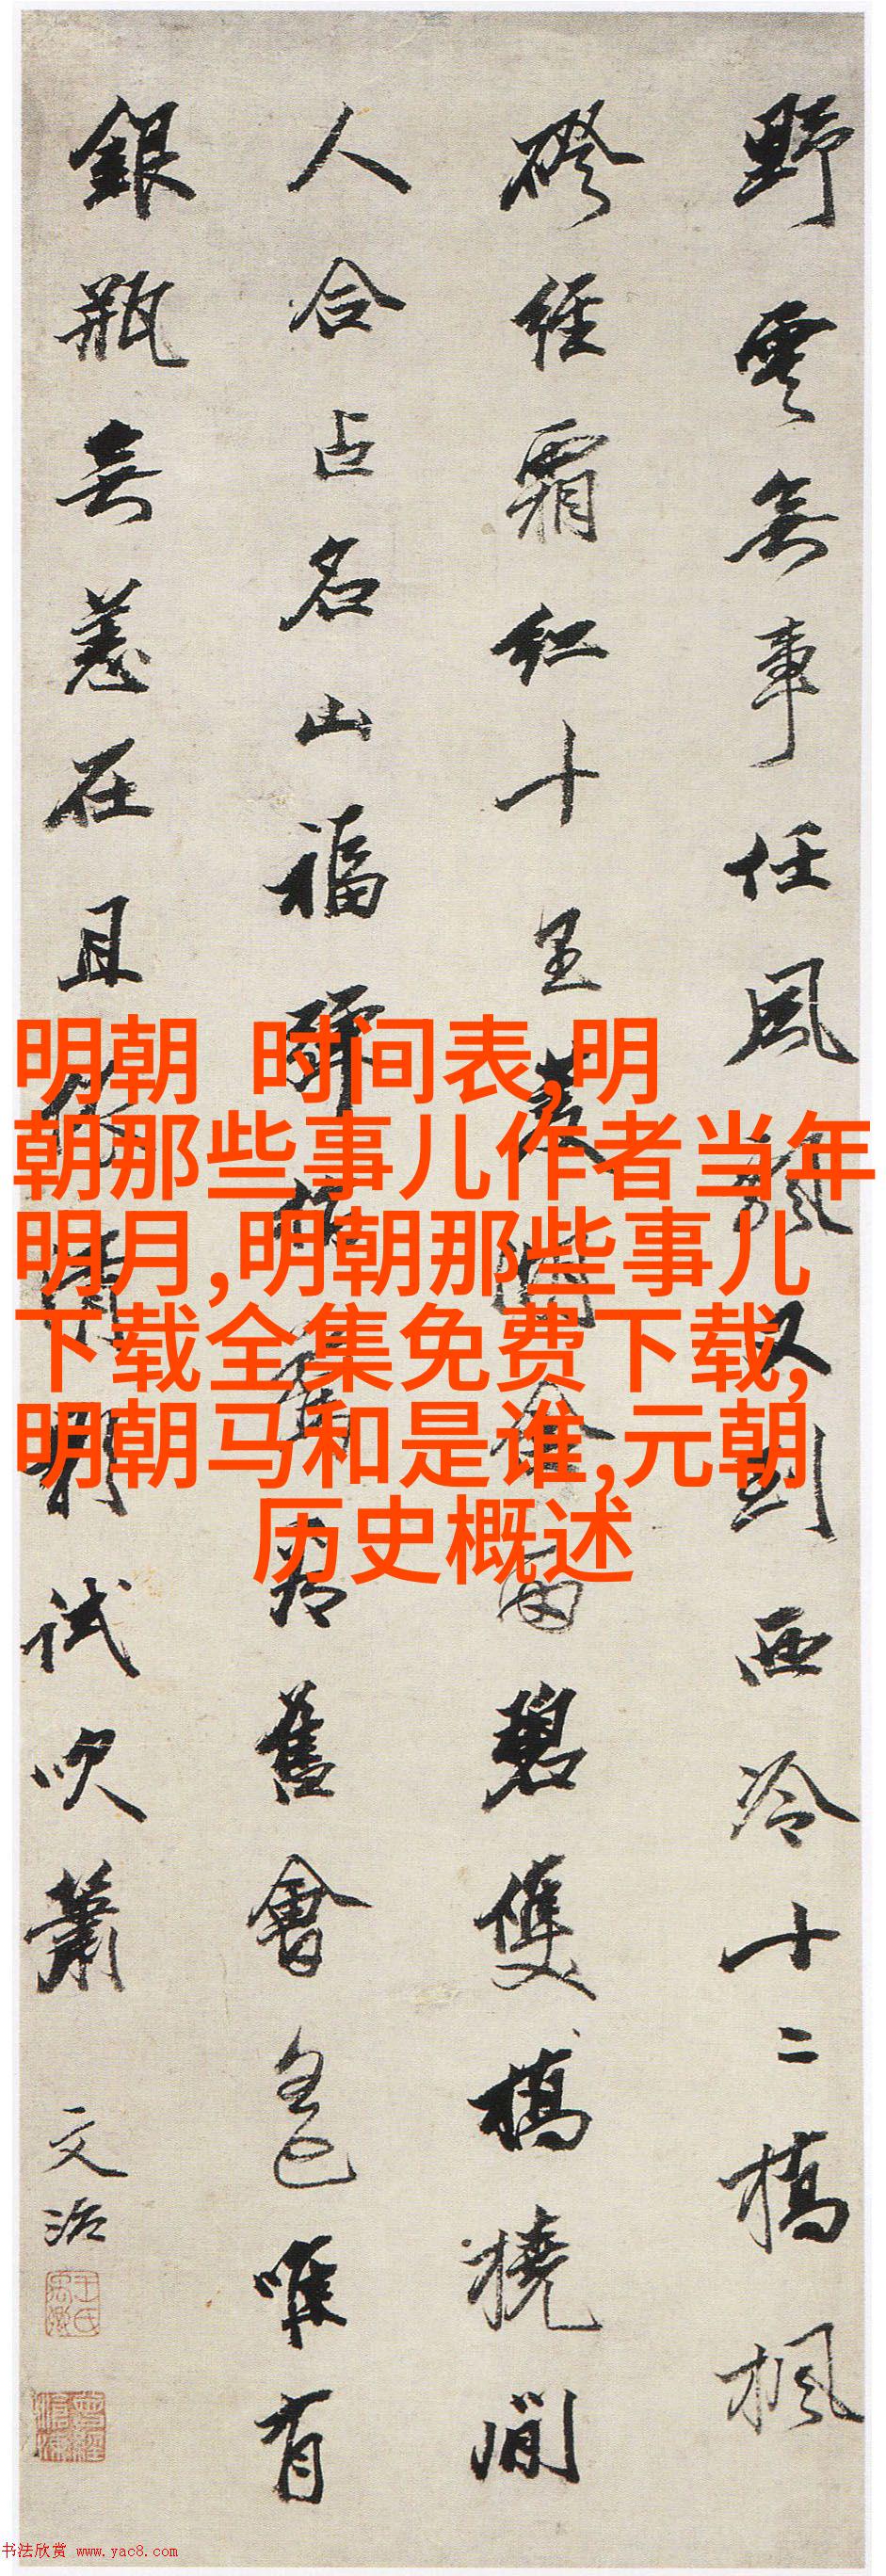 野雲無事任風飄又到西泠十二橋楓
磴經霜紅十里湖雨碧雙橋橈閒
人合占名山福舊會唯有
銀瓶無恙在且依清影試吹簫
文治
明朝 时间表,明
朝那些事儿作者当年
明月,明朝那些事儿
下载全集免费下载,
明朝马和是谁,元朝
历史概述
书法欣赏 www.yac8.com